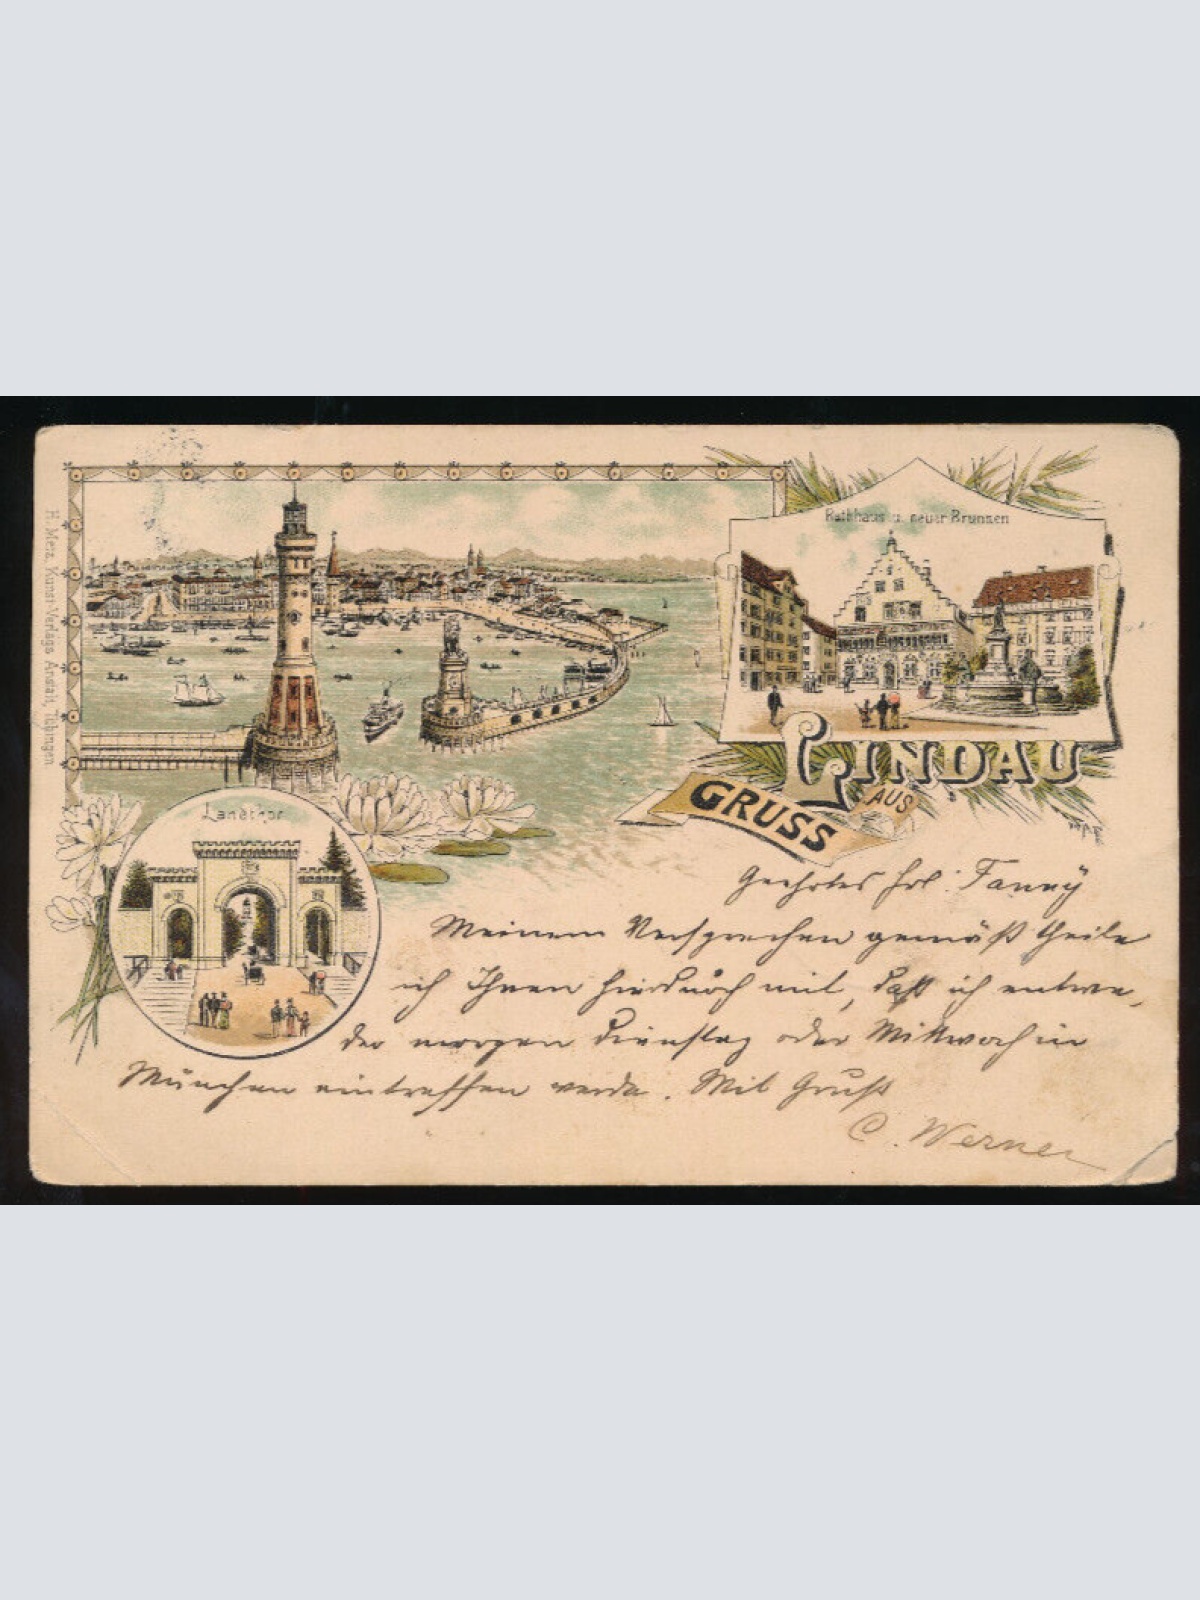 H. Metz, Kunst-Verlags Anstalt, Tübingen
Rathhaus u. neuer Brunnen
GRUSS AUS LINDAU
Landthor
Geehrtes Frl. Fanny
Meinem Versprechen gemäß theile
ich Ihnen hierdurch mit, daß ich entwe-
der morgen Dienstag oder Mittwoch in
München eintreffen werde. Mit Gruß
C. Werner